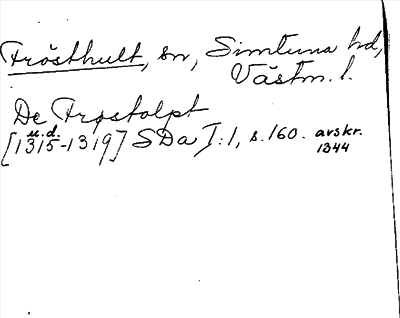 Frösthult, sn, Simtuna hd,
Västm. l.
De Frøstolpt
u.d.
[1315-1319] SDa I:1, s.160. avskr.
1344